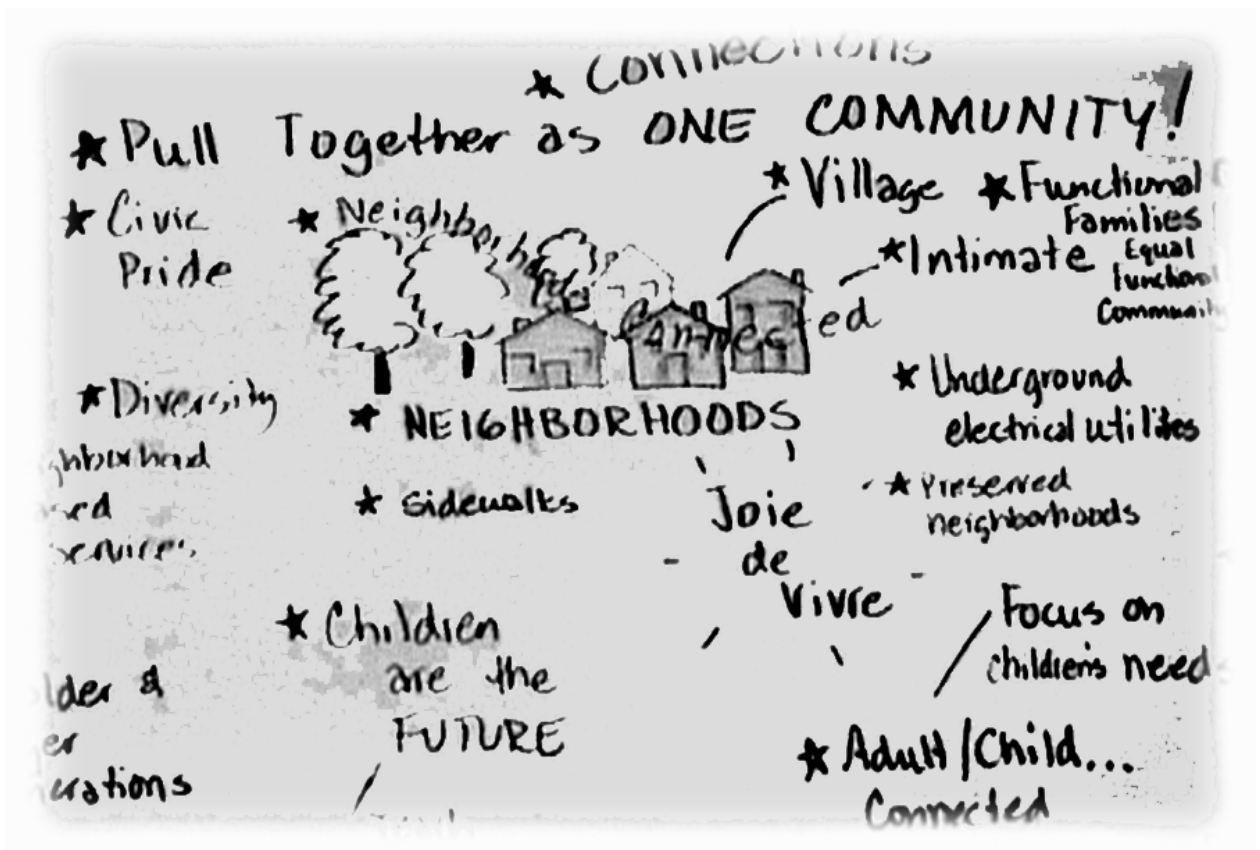 ★ Connections
★ Pull Together as ONE COMMUNITY!
★ Civic
Pride
★ Neighborhoods
Connected
★ Village
★ Functional
Families
Equal
Functional
Community
★ Intimate
★ Diversity
★ NEIGHBORHOODS
★ Underground
electrical utilites
ghborhood
services
★ Sidewalks
Joie
de
Vivre
★ Preserved
neighborhoods
★ Children
are the
FUTURE
Focus on
children's need
lder &
er
erations
★ Adult/Child...
Connected